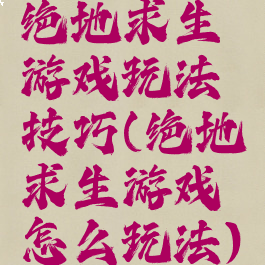 绝地求生
游戏玩法
技巧(绝地
求生游戏
怎么玩法)